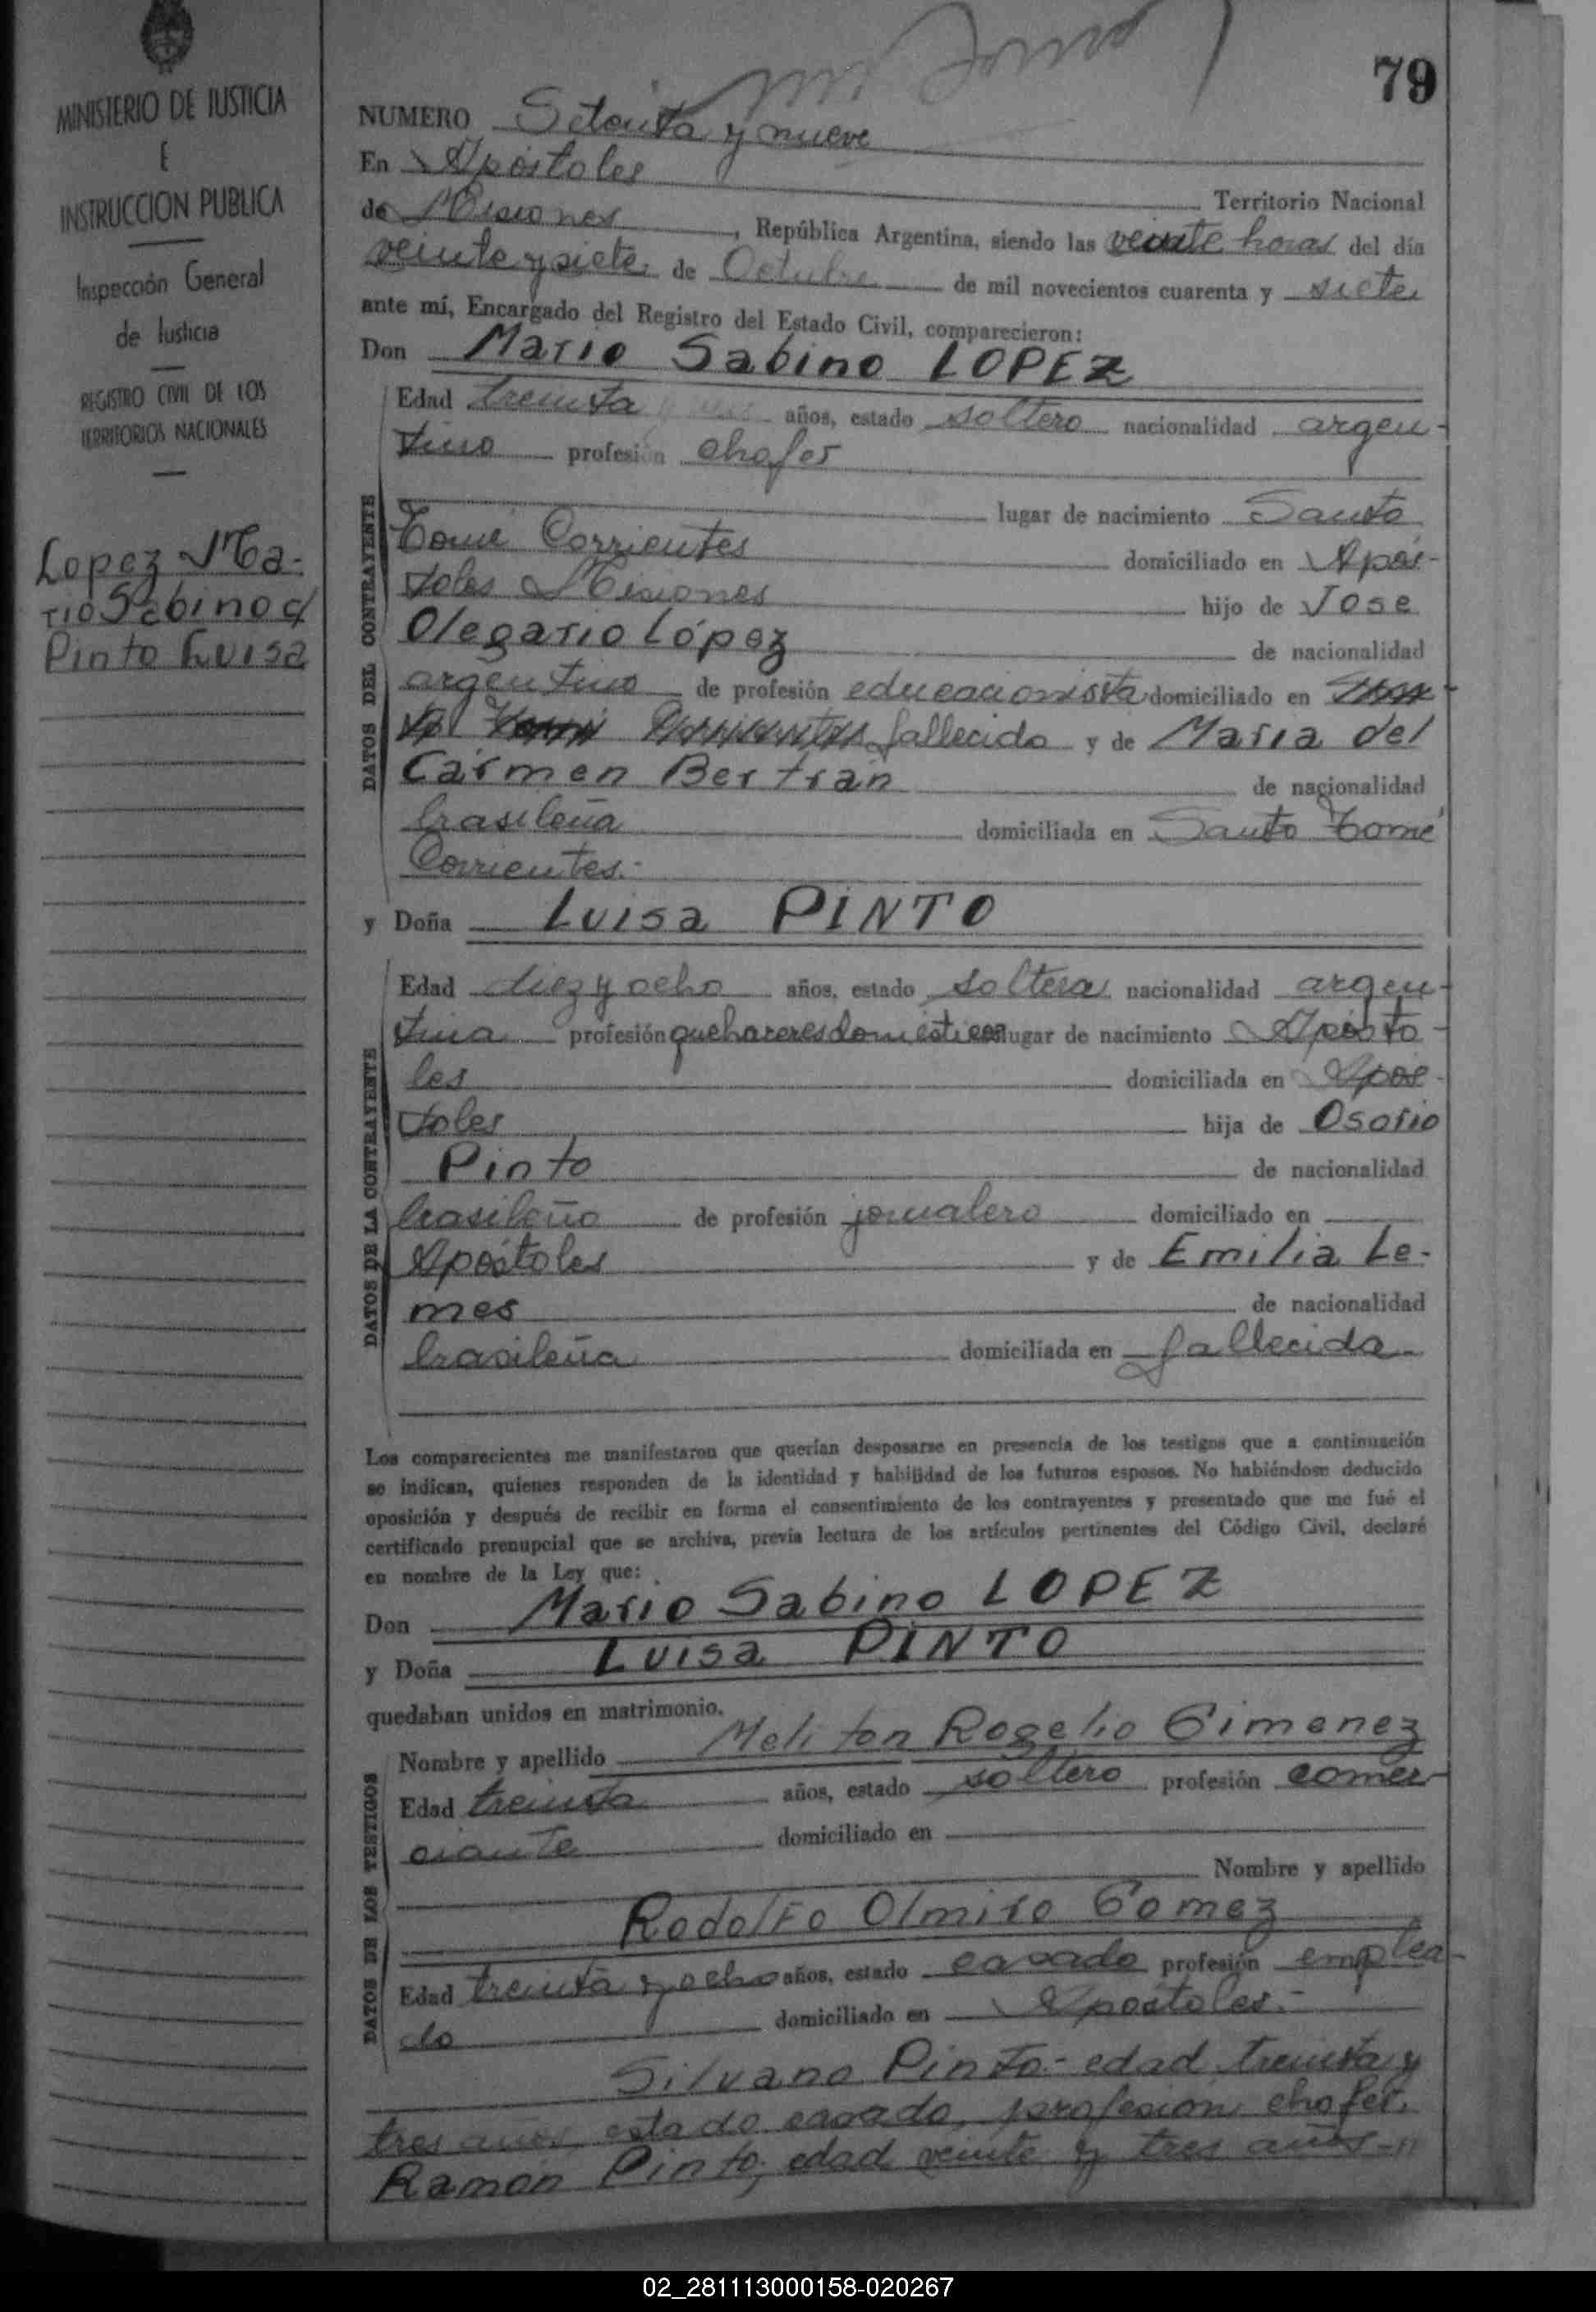 79
MINISTERIO DE JUSTICIA
E
INSTRUCCION PUBLICA
Inspección General
de Justicia
REGISTRO CIVIL DE LOS
TERRITORIOS NACIONALES
Lopez Ma-
rio Sabino c/
Pinto Luisa
NUMERO Setenta y nueve
En Apóstoles Territorio Nacional
de Misiones, República Argentina, siendo las veinte horas del día
veinte y siete de Octubre de mil novecientos cuarenta y siete
ante mí, Encargado del Registro del Estado Civil, comparecieron:
Don Mario Sabino LOPEZ
DATOS DEL CONTRAYENTE
Edad treinta años, estado soltero nacionalidad argen-
tino profesión chofer
lugar de nacimiento Santo
Tomé Corrientes domiciliado en Após-
toles Misiones hijo de Jose
Olegario López de nacionalidad
argentino de profesión educacionista domiciliado en
fallecido y de Maria del
Carmen Bertrán de nacionalidad
brasileña domiciliada en Santo Tomé
Corrientes.-
y Doña Luisa PINTO
DATOS DE LA CONTRAYENTE
Edad diez y ocho años, estado soltera nacionalidad argen-
tina profesión quehaceres domésticos lugar de nacimiento Apósto-
les domiciliada en Após-
toles hija de Osorio
Pinto de nacionalidad
brasileño de profesión jornalero domiciliado en
Apóstoles y de Emilia Le-
mes de nacionalidad
brasileña domiciliada en fallecida.
Los comparecientes me manifestaron que querían desposarse en presencia de los testigos que a continuación
se indican, quienes responden de la identidad y habilidad de los futuros esposos. No habiéndose deducido
oposición y después de recibir en forma el consentimiento de los contrayentes y presentado que me fué el
certificado prenupcial que se archiva, previa lectura de los artículos pertinentes del Código Civil, declaré
en nombre de la Ley que:
Don Mario Sabino LOPEZ
y Doña Luisa PINTO
quedaban unidos en matrimonio.
DATOS DE LOS TESTIGOS
Nombre y apellido Meliton Rogelio Gimenez
Edad treinta años, estado soltero profesión comer-
ciante domiciliado en
Nombre y apellido
Rodolfo Olmiro Gomez
Edad treinta y ocho años, estado casado profesión emplea-
do domiciliado en Apóstoles.-
Silvano Pinto.- edad treinta y
tres años, estado casado, profesión chofer.
Ramón Pinto, edad veinte y tres años-
02_281113000158-020267